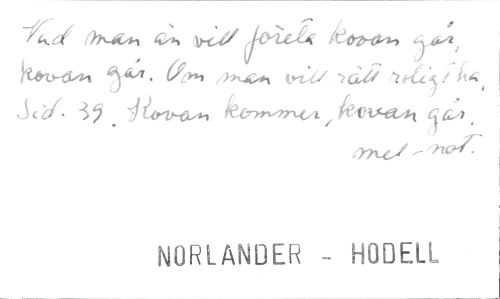 Vad man än vill företa kovan går,
kovan går. Om man vill rätt roligt ha,
Sid. 39. Kovan kommer, kovan går.
mel-not.
NORLANDER - HODELL